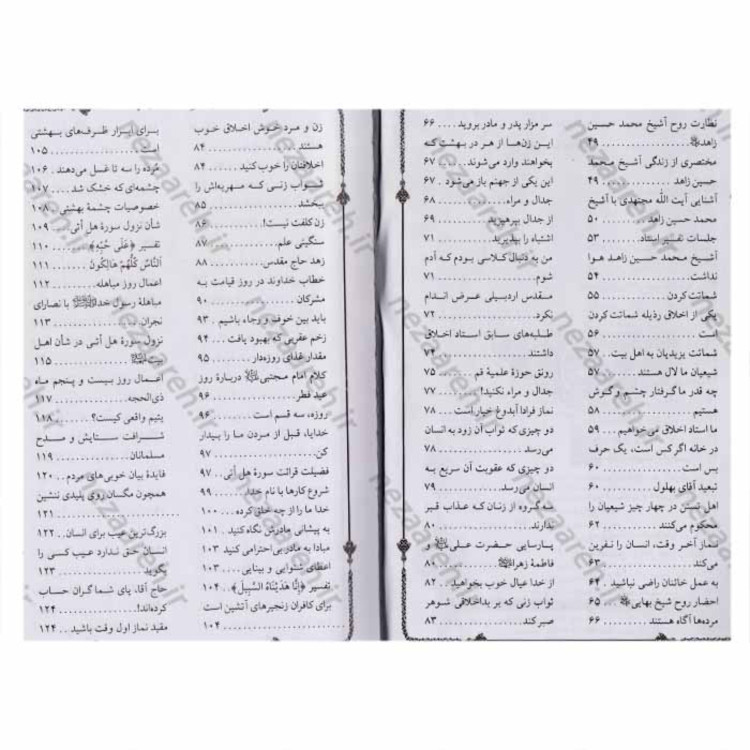 نظارت روح آشیخ محمد حسین
زاهد ........ ۴۹
مختصری از زندگی آشیخ محمد
حسین زاهد ........ ۴۹
آشنایی آیت الله مجتهدی با آشیخ
محمد حسین زاهد ........ ۵۰
جلسات تفسیر استاد ........ ۵۳
آشیخ محمد حسین زاهد هوا
نداشت ........ ۵۴
شماتت کردن ........ ۵۵
یکی از اخلاق رذیله شماتت کردن
است ........ ۵۶
شماتت یزیدیان به اهل بیت .. ۵۷
شیعیان ما لال هستند ........ ۵۷
چه قدر ما گرفتار چشم و گوش
هستیم ........ ۵۸
ما استاد اخلاق می‌خواهیم ... ۵۹
در خانه اگر کس است، یک حرف
بس است ........ ۶۰
تبعید آقای بهلول ........ ۶۰
اهل تسنن در چهار چیز شیعیان را
محکوم می‌کنند ........ ۶۲
نماز آخر وقت، انسان را نفرین
می‌کند ........ ۶۳
به عمل خائنان راضی نباشید .. ۶۴
احضار روح شیخ بهایی ... ۶۵
مرده‌ها آگاه هستند ........ ۶۶
سر مزار پدر و مادر بروید .... ۶۶
این زن‌ها از هر در بهشت که
بخواهند وارد می‌شوند .... ۶۷
این یکی از جهنم باز می‌شود . ۶۷
جدال و مراء ........ ۶۸
از جدال بپرهیزید ........ ۶۹
اشتباه را بپذیرید ........ ۷۱
من به دنبال کلاسی بودم که آدم
شوم ........ ۷۱
مقدس اردبیلی عرض اندام
نکرد ........ ۷۲
طلبه‌های سابق استاد اخلاق
داشتند ........ ۷۴
رونق حوزۀ علمیۀ قم ........ ۷۵
جدال و مراء نکنید! ........ ۷۷
نماز فرادا آبدوغ خیار است ... ۷۸
دو چیزی که ثواب آن زود به انسان
می‌رسد ........ ۷۸
دو چیزی که عقوبت آن سریع به
انسان می‌رسد ........ ۷۹
سه گروه از زنان که عذاب قبر
ندارند ........ ۸۰
پارسایی حضرت علی و
فاطمۀ زهرا ........ ۸۰
از خدا عیال خوب بخواهید .. ۸۲
ثواب زنی که بر بداخلاقی شوهر
صبر کند ........ ۸۳
زن و مرد خوش اخلاق خوب
هستند ........ ۸۴
اخلاقتان را خوب کنید ........ ۸۴
ثواب زنی که مهریه‌اش را
ببخشد ........ ۸۵
زن کلفت نیست! ........ ۸۶
سنگینی علم ........ ۸۷
زهد حاج مقدس ........ ۸۸
خطاب خداوند در روز قیامت به
مشرکان ........ ۹۰
باید بین خوف و رجاء باشیم . ۹۳
زخم عقربی که بهبود یافت ... ۹۴
مقدار غذای روزه‌دار ........ ۹۵
کلام امام مجتبی دربارۀ روز
عید فطر ........ ۹۶
روزه، سه قسم است ........ ۹۶
خدایا، قبل از مردن ما را بیدار
کن ........ ۹۷
فضیلت قرائت سورۀ هل أتی .. ۹۷
شروع کارها با نام خدا ........ ۹۹
خدا ما را از چه خلق کرده ... ۱۰۰
به پیشانی مادرش نگاه کنید . ۱۰۱
مبادا به مادر بی‌احترامی کنید ۱۰۳
اعطای شنوایی و بینایی .... ۱۰۳
تفسیر ﴿إِنَّا هَدَيْنَاهُ السَّبِيلَ﴾ .. ۱۰۴
برای کافران زنجیرهای آتشین است
........ ۱۰۴
برای ابرار ظرف‌های بهشتی
است ........ ۱۰۵
مرده را سه تا غسل می‌دهند . ۱۰۶
چشمه‌ای که خشک شد .... ۱۰۷
خصوصیات چشمۀ بهشتی . ۱۰۸
شأن نزول سورۀ هل أتی .... ۱۰۹
تفسیر ﴿عَلَى حُبِّهِ﴾ ........ ۱۱۰
اَلنّاسُ كُلُّهُمْ هَالِكُونَ ........ ۱۱۱
اعمال روز مباهله ........ ۱۱۲
مباهلۀ رسول خدا با نصارای
نجران ........ ۱۱۳
نزول سورۀ هل أتی در شأن اهل
بیت ........ ۱۱۵
اعمال روز بیست و پنجم ماه
ذی‌الحجه ........ ۱۱۷
یتیم واقعی کیست؟ ........ ۱۱۸
شرافت ستایش و مدح
مسلمانان ........ ۱۱۹
فایدۀ بیان خوبی‌های مردم .. ۱۲۰
همچون مگسان روی پلیدی ننشین
........ ۱۲۱
بزرگ‌ترین عیب برای انسان .. ۱۲۲
انسان حق ندارد عیب کسی را
بگوید ........ ۱۲۳
حاج آقا، پای شما گران حساب
کرده‌اند! ........ ۱۲۴
مقید نماز اول وقت باشید .. ۱۲۴
nezaareh.ir